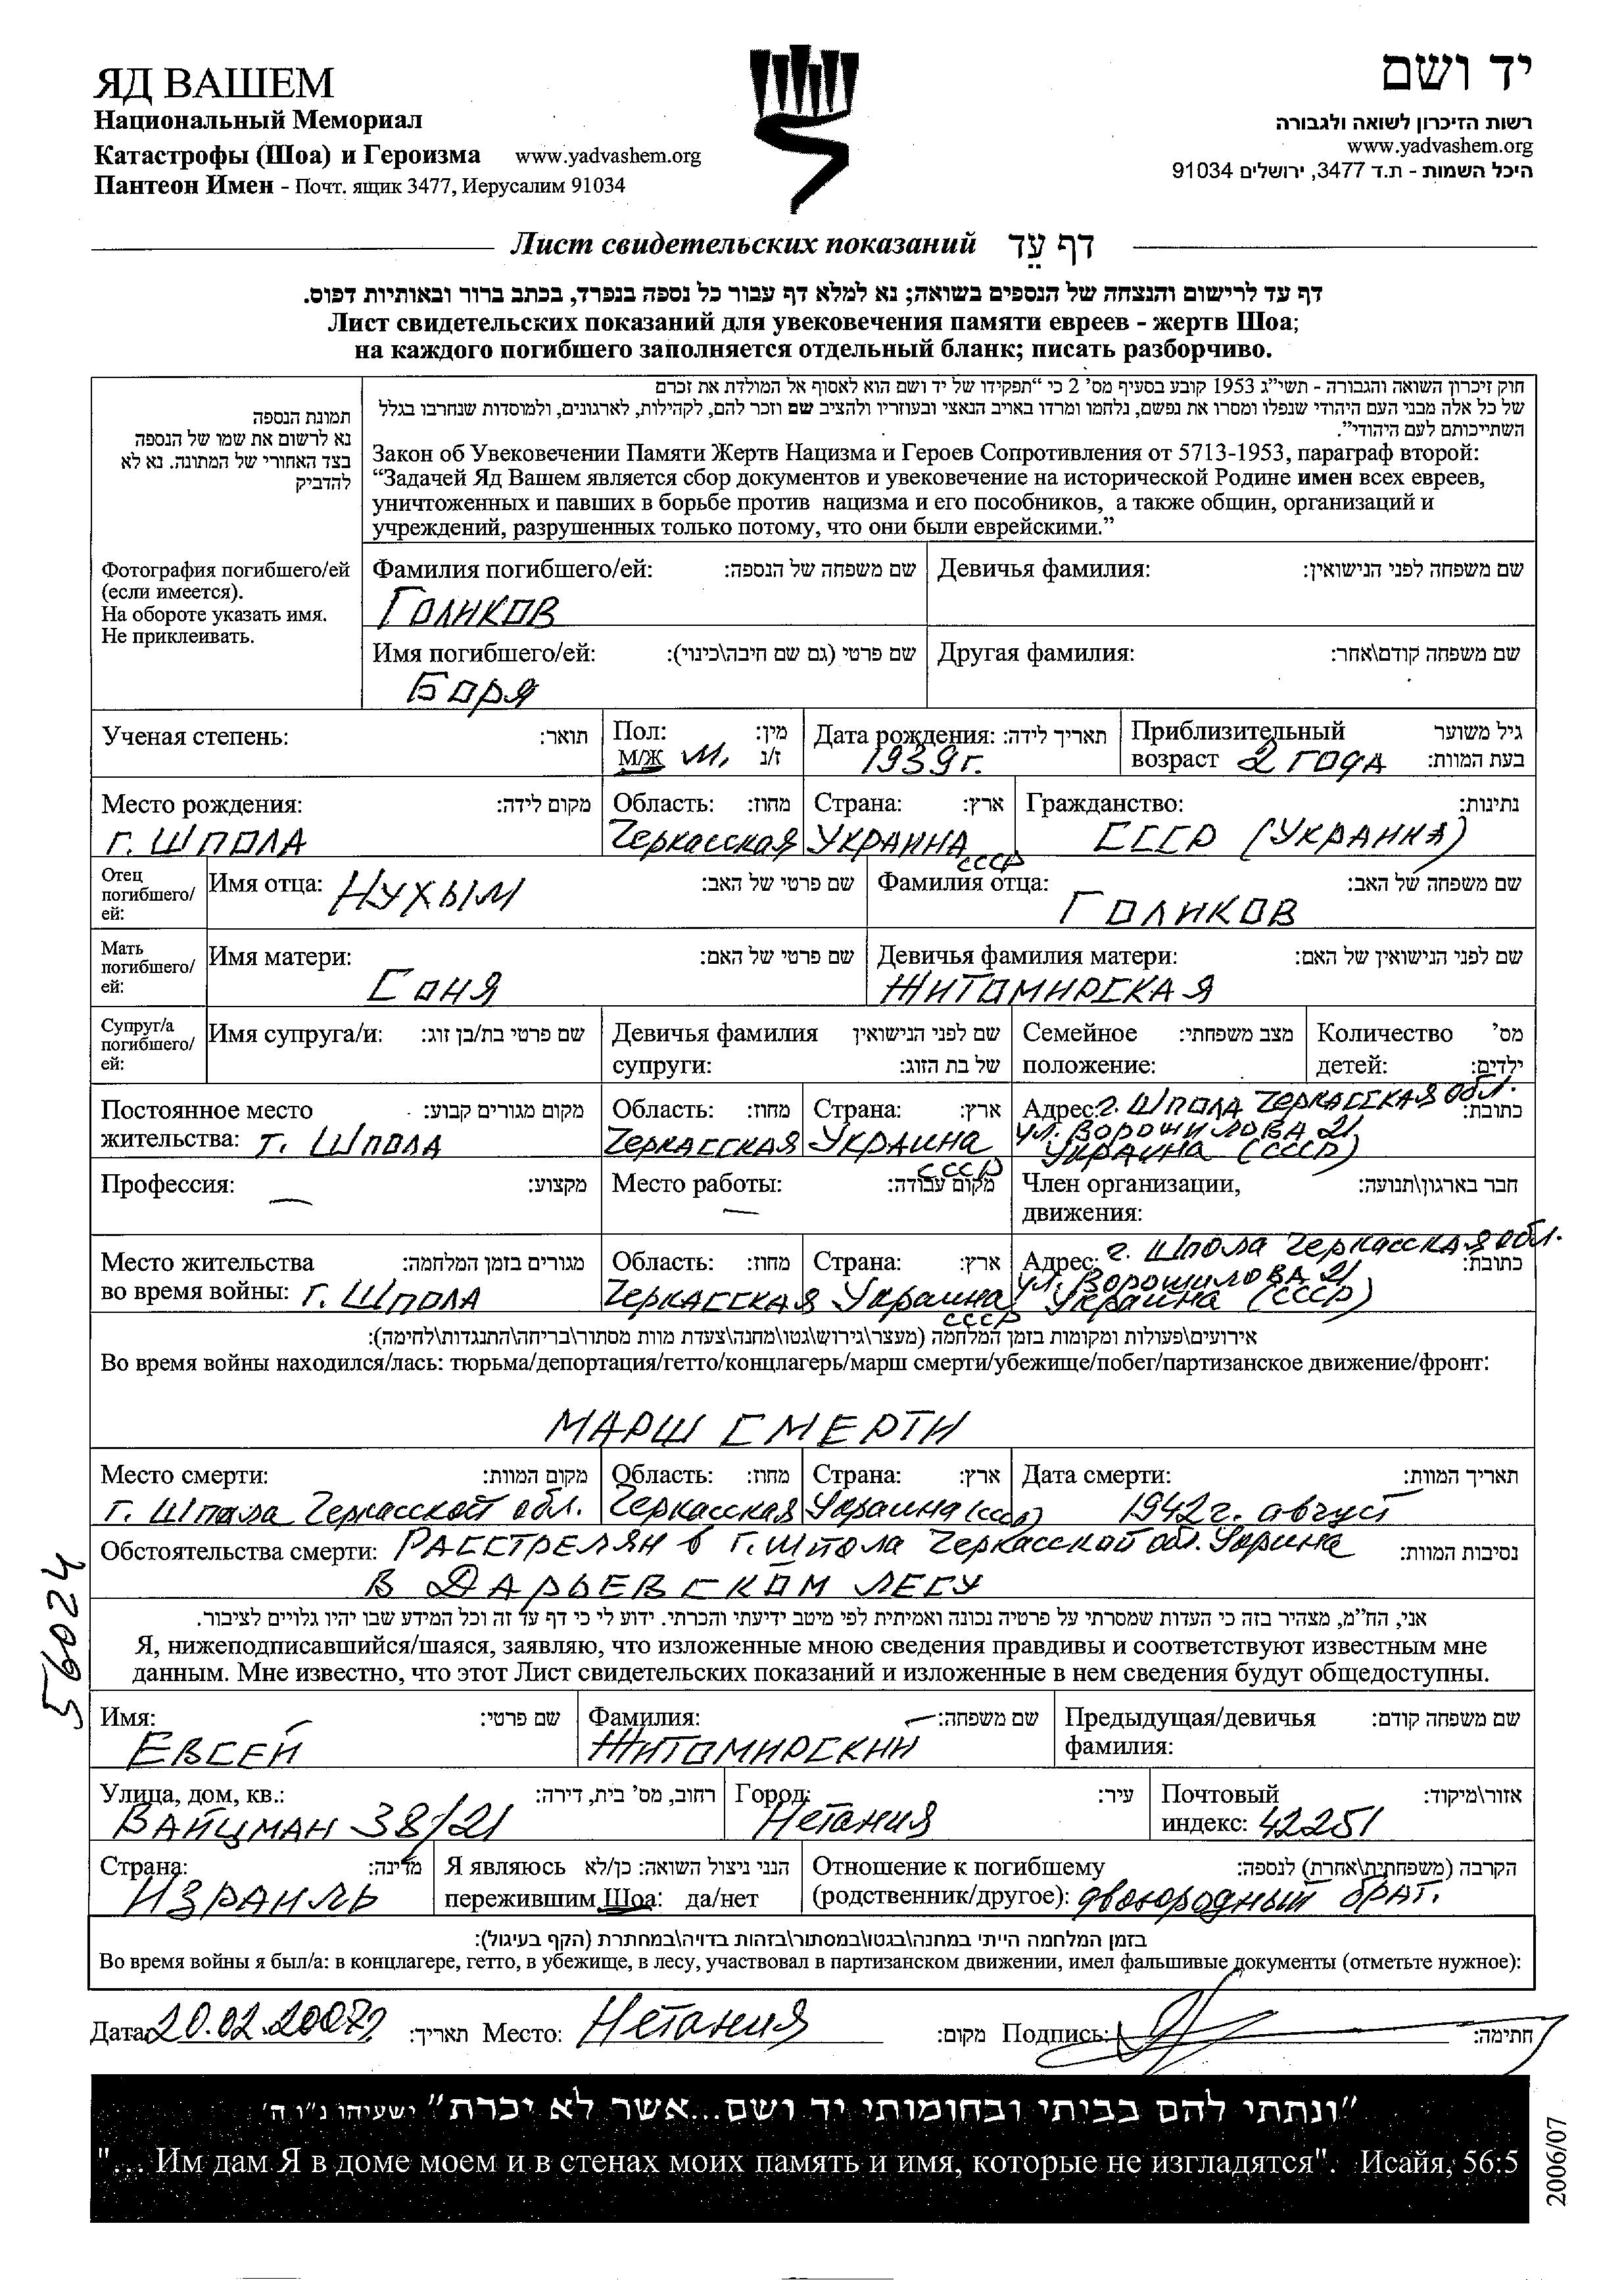 ЯД ВАШЕМ
Национальный Мемориал
Катастрофы (Шоа) и Героизма www.yadvashem.org
Пантеон Имен - Почт. ящик 3477, Иерусалим 91034
יד ושם
רשות הזיכרון לשואה ולגבורה
www.yadvashem.org
היכל השמות - ת.ד 3477, ירושלים 91034
Лист свидетельских показаний דף עֵד
דף עד לרישום והנצחה של הנספים בשואה; נא למלא דף עבור כל נספה בנפרד, בכתב ברור ובאותיות דפוס.
Лист свидетельских показаний для увековечения памяти евреев - жертв Шоа;
на каждого погибшего заполняется отдельный бланк; писать разборчиво.
תמונת הנספה
נא לרשום את שמו של הנספה
בצד האחורי של המתונה. נא לא
להדביק
Фотография погибшего/ей
(если имеется).
На обороте указать имя.
Не приклеивать.
חוק זיכרון השואה והגבורה - תשי"ג 1953 קובע בסעיף מס' 2 כי "תפקידו של יד ושם הוא לאסוף אל המולדת את זכרם
של כל אלה מבני העם היהודי שנפלו ומסרו את נפשם, נלחמו ומרדו באויב הנאצי ובעוזריו ולהציב שם וזכר להם, לקהילות, לארגונים, ולמוסדות שנחרבו בגלל
השתייכותם לעם היהודי".
Закон об Увековечении Памяти Жертв Нацизма и Героев Сопротивления от 5713-1953, параграф второй:
“Задачей Яд Вашем является сбор документов и увековечение на исторической Родине имен всех евреев,
уничтоженных и павших в борьбе против нацизма и его пособников, а также общин, организаций и
учреждений, разрушенных только потому, что они были еврейскими.”
Фамилия погибшего/ей: שם משפחה של הנספה: Девичья фамилия: שם משפחה לפני הנישואין:
Голиков
Имя погибшего/ей: שם פרטי (גם שם חיבה\כינוי): Другая фамилия: שם משפחה קודם\אחר:
Боря
Ученая степень: תואר: Пол: מין: Дата рождения: תאריך לידה: Приблизительный גיל משוער
М/Ж м. ז/נ 1939г. возраст 2 года בעת המוות:
Место рождения: מקום לידה: Область: מחוז: Страна: ארץ: Гражданство: נתינות:
г. Шпола Черкасская Украина СССР СССР (Украина)
Отец погибшего/ей: Имя отца: Нухым שם פרטי של האב: Фамилия отца: Голиков שם משפחה של האב:
Мать погибшего/ей: Имя матери: Соня שם פרטי של האם: Девичья фамилия матери: Житомирская שם לפני הנישואין של האם:
Супруг/а погибшего/ей: Имя супруга/и: שם פרטי בת/בן זוג: Девичья фамилия супруги: שם לפני הנישואין של בת הזוג: Семейное положение: מצב משפחתי: Количество детей: מס' ילדים:
Постоянное место מקום מגורים קבוע: Область: מחוז: Страна: ארץ: Адрес: г. Шпола Черкасская обл. כתובת:
жительства: г. Шпола Черкасская Украина СССР ул. Ворошилова 21
Украина (СССР)
Профессия: — מקצוע: Место работы: — מקום עבודה: Член организации, движения: חבר בארגון\תנועה:
Место жительства מגורים בזמן המלחמה: Область: מחוז: Страна: ארץ: Адрес: г. Шпола Черкасская обл. כתובת:
во время войны: г. Шпола Черкасская Украина СССР ул. Ворошилова 21
Украина (СССР)
אירועים\פעולות ומקומות בזמן המלחמה (מעצר\גירוש\גטו\מחנה\צעדת מוות מסתור\בריחה\התנגדות\לחימה):
Во время войны находился/лась: тюрьма/депортация/гетто/концлагерь/марш смерти/убежище/побег/партизанское движение/фронт:
Марш смерти
Место смерти: מקום המוות: Область: מחוז: Страна: ארץ: Дата смерти: תאריך המוות:
г. Шпола Черкасской обл. Черкасская Украина (СССР) 1942г. август
Обстоятельства смерти: Расстрелян в г. Шпола Черкасской обл. Украина נסיבות המוות:
в Дарьевском лесу
אני, הח"מ, מצהיר בזה כי העדות שמסרתי על פרטיה נכונה ואמיתית לפי מיטב ידיעתי והכרתי. ידוע לי כי דף עד זה וכל המידע שבו יהיו גלויים לציבור.
Я, нижеподписавшийся/шаяся, заявляю, что изложенные мною сведения правдивы и соответствуют известным мне
данным. Мне известно, что этот Лист свидетельских показаний и изложенные в нем сведения будут общедоступны.
Имя: שם פרטי: Фамилия: שם משפחה: Предыдущая/девичья фамилия: שם משפחה קודם:
Евсей Житомирский
Улица, дом, кв.: רחוב, מס' בית, דירה: Город: עיר: Почтовый אזור\מיקוד:
Вайцман 38/21 Нетания индекс: 42251
Страна: מדינה: Я являюсь הנני ניצול השואה: כן/לא Отношение к погибшему הקרבה (משפחתית\אחרת) לנספה:
Израиль пережившим Шоа: да/нет (родственник/другое): двоюродный брат.
בזמן המלחמה הייתי במחנה\בגטו\במסתור\בזהות בדויה\במחתרת (הקף בעיגול):
Во время войны я был/а: в концлагере, гетто, в убежище, в лесу, участвовал в партизанском движении, имел фальшивые документы (отметьте нужное):
Дата: 20.02.2007г תאריך: Место: Нетания מקום: Подпись: חתימה:
"ונתתי להם בביתי ובחומותי יד ושם...אשר לא יכרת" ישעיהו נ"ו ה'
"... Им дам Я в доме моем и в стенах моих память и имя, которые не изгладятся". Исайя, 56:5
56024
2006/07